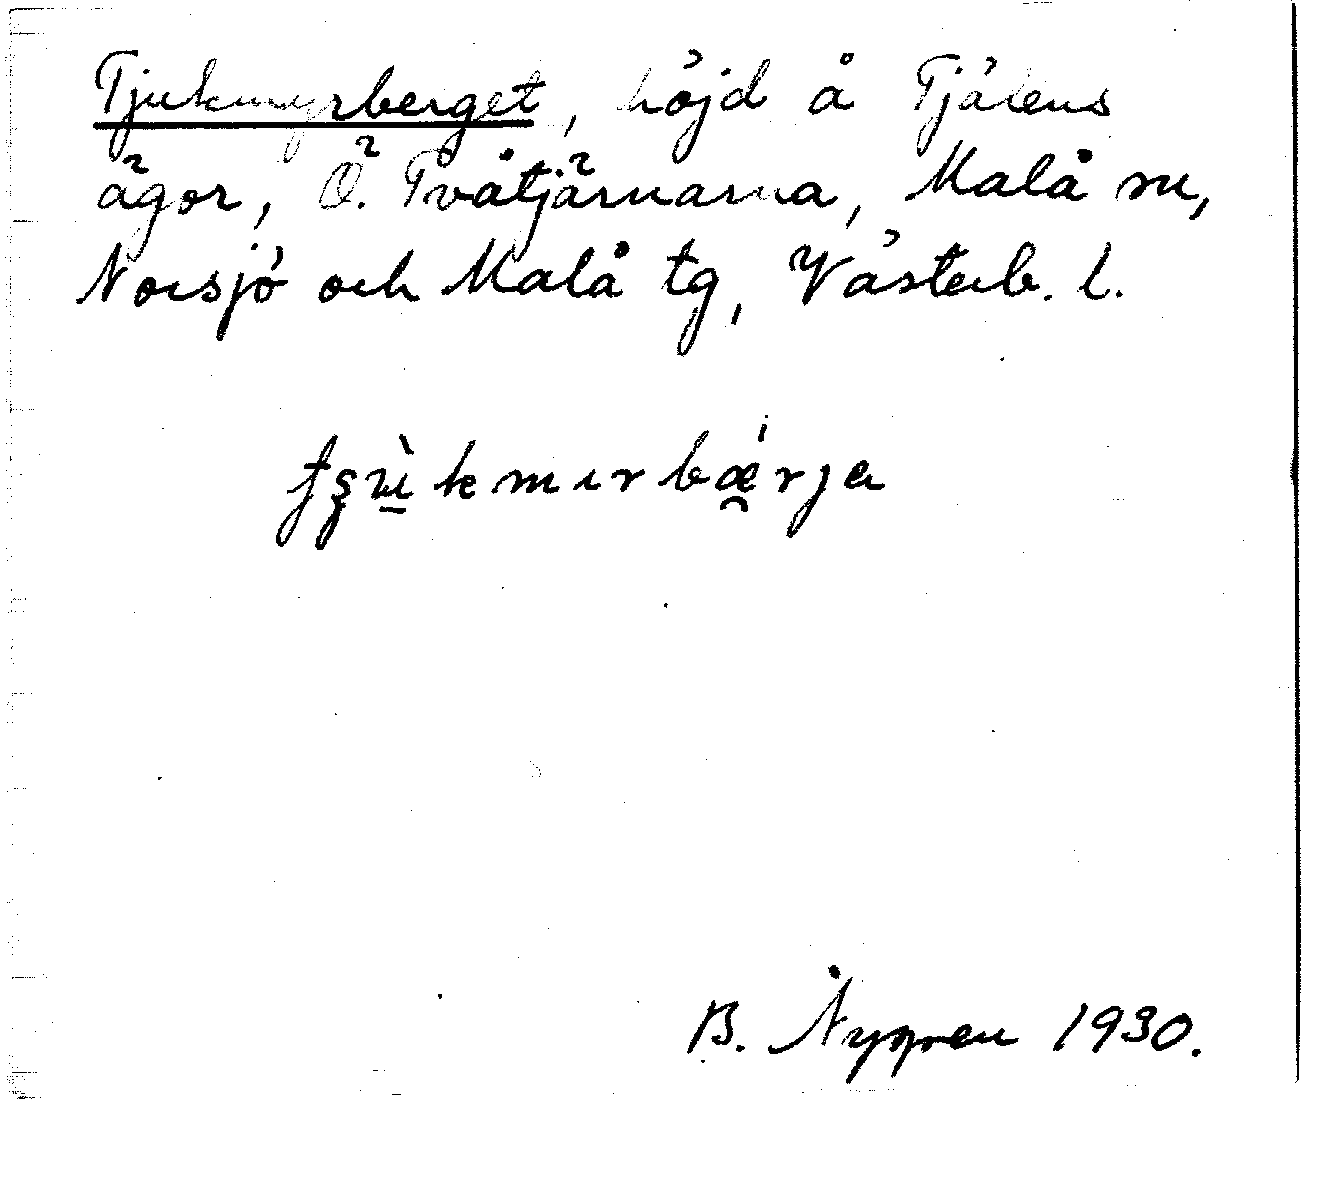 Tjukmyrberget, höjd å Tjälens
ägor, Ö. Tvåtjärnarna, Malå sn,
Norsjö och Malå tg, Västerb. l.
B. Nygren 1930.